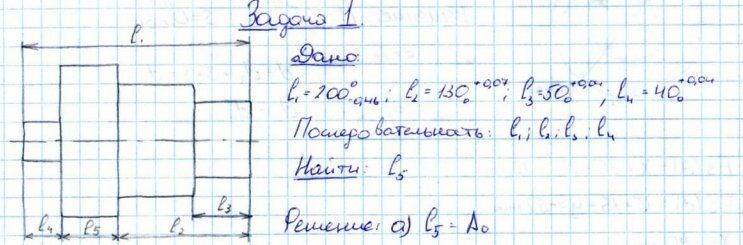 Задача 1.
l₁
Дано:
l₁=200⁰₋₀,₄₆; l₂=130₀⁺⁰,⁰⁷; l₃=50₀⁺⁰,⁰⁴; l₄=40₀⁺⁰,⁰⁴
Последовательность: l₁; l₂; l₃; l₄
Найти: l₅
l₄ l₅ l₂ l₃
Решение: а) l₅ = A₀